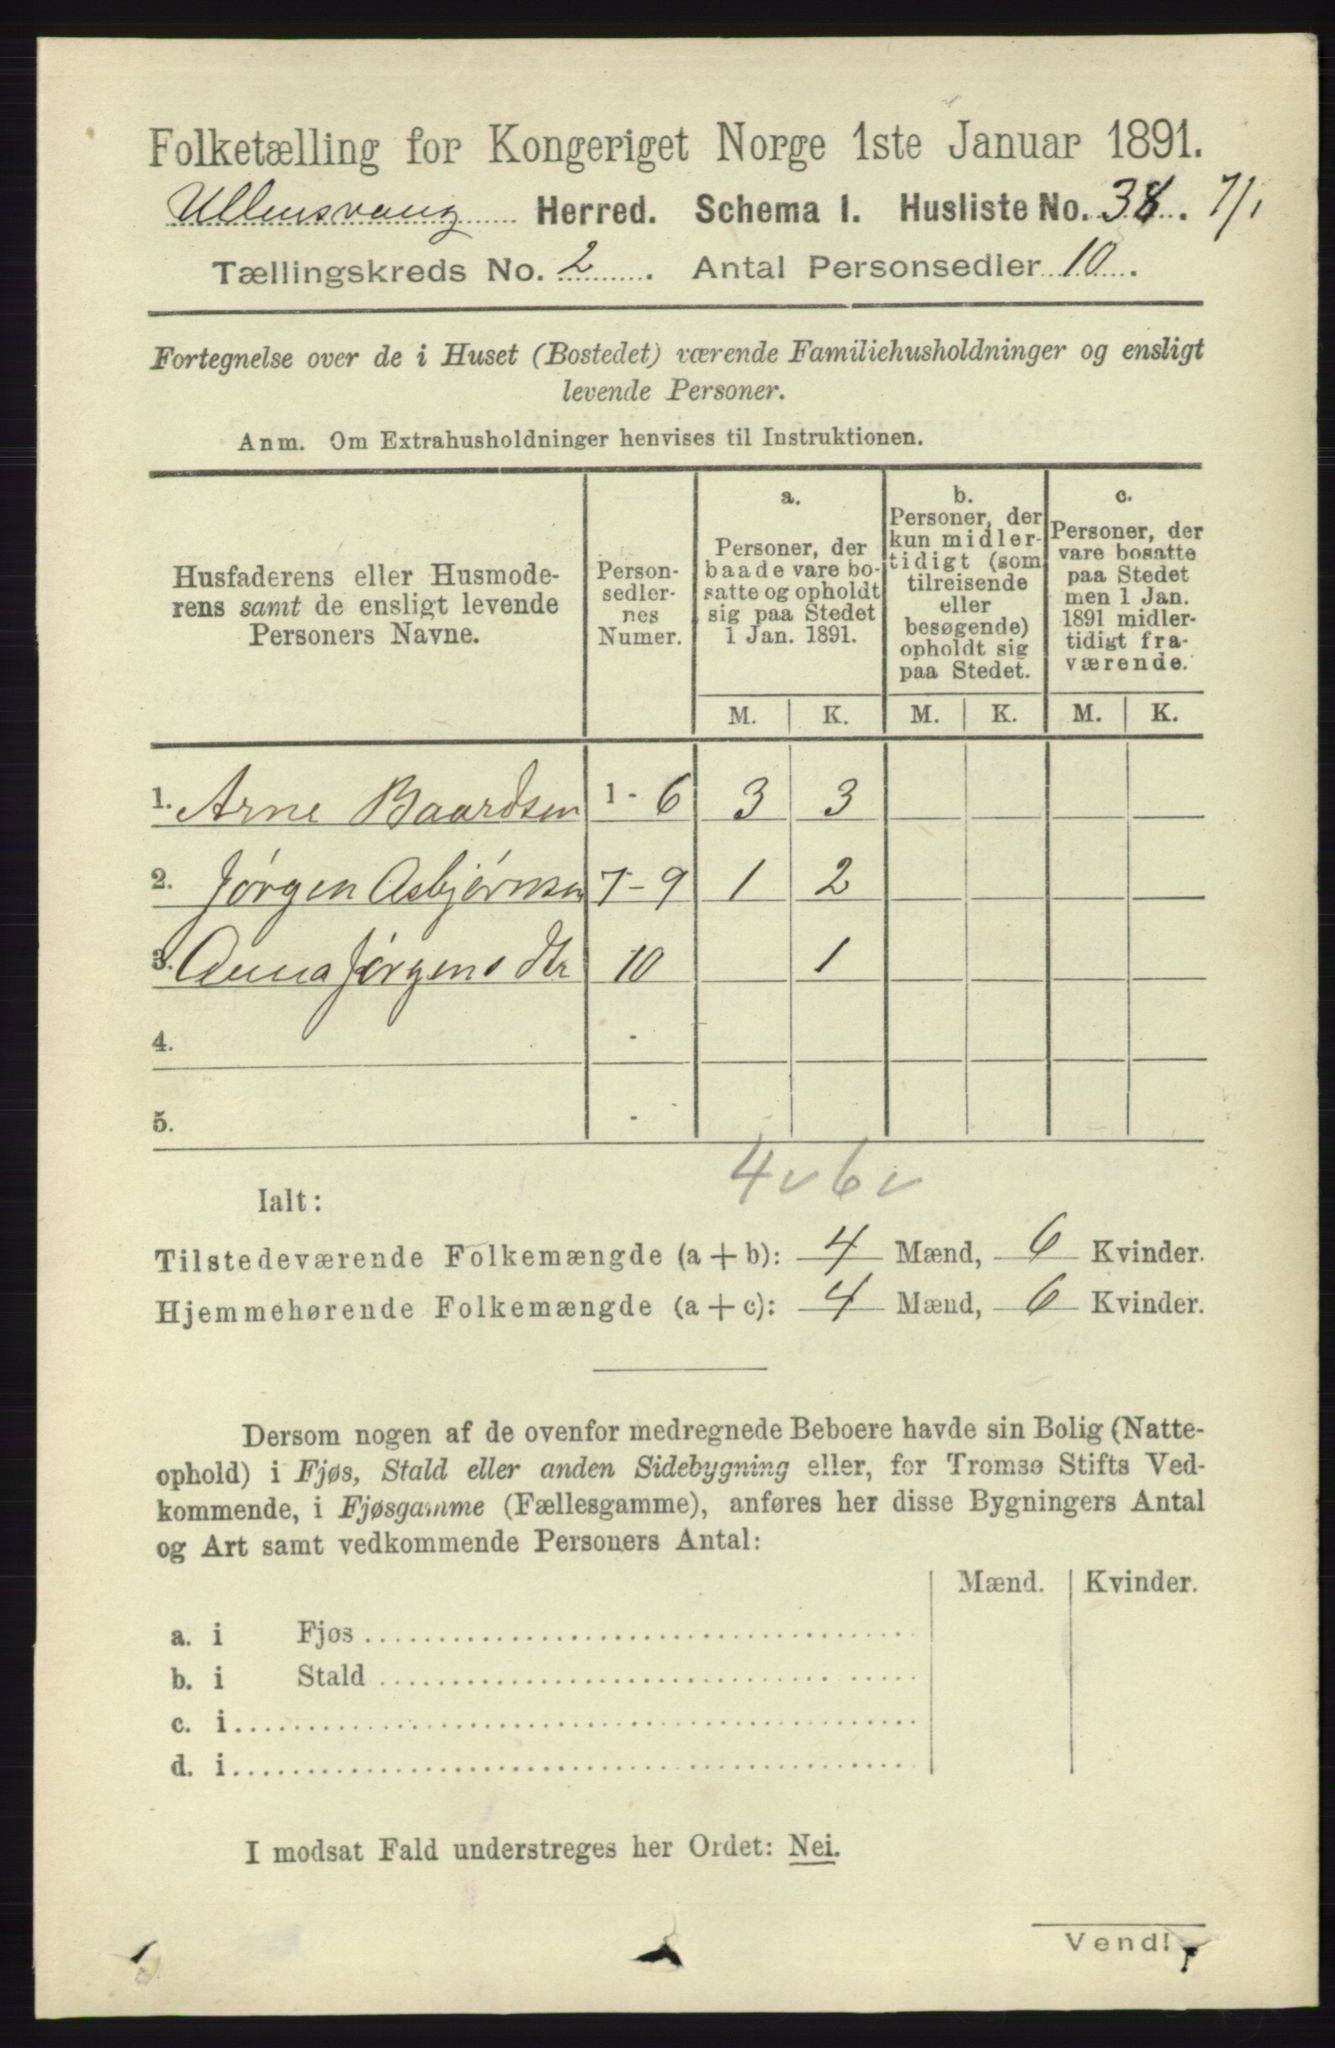 Folketælling for Kongeriget Norge 1ste Januar 1891.
Ullensvang Herred. Schema I. Husliste No. 38. 7/1
Tællingskreds No. 2. Antal Personsedler 10.
Fortegnelse over de i Huset (Bostedet) værende Familiehusholdninger og ensligt
levende Personer.
Anm. Om Extrahusholdninger henvises til Instruktionen.
Husfaderens eller Husmode-
rens samt de ensligt levende
Personers Navne.
Person-
sedler-
nes
Numer.
a.
Personer, der
baade vare bo-
satte og opholdt
sig paa Stedet
1 Jan. 1891.
b.
Personer, der
kun midler-
tidigt (som
tilreisende
eller
besøgende)
opholdt sig
paa Stedet.
c.
Personer, der
vare bosatte
paa Stedet
men 1 Jan.
1891 midler-
tidigt fra-
værende.
M. K. M. K. M. K.
1. Arne Baardsen 1 - 6 3 3
2. Jørgen Asbjørnsen 7-9 1 2
3. Anna Jørgensdtr 10 1
4. -
5. -
4 v 6 v
Ialt:
Tilstedeværende Folkemængde (a + b): 4 Mænd, 6 Kvinder.
Hjemmehørende Folkemængde (a + c): 4 Mænd, 6 Kvinder.
Dersom nogen af de ovenfor medregnede Beboere havde sin Bolig (Natte-
ophold) i Fjøs, Stald eller anden Sidebygning eller, for Tromsø Stifts Ved-
kommende, i Fjøsgamme (Fællesgamme), anføres her disse Bygningers Antal
og Art samt vedkommende Personers Antal:
Mænd. Kvinder.
a. i Fjøs
b. i Stald
c. i
d. i
I modsat Fald understreges her Ordet: Nei.
Vend!